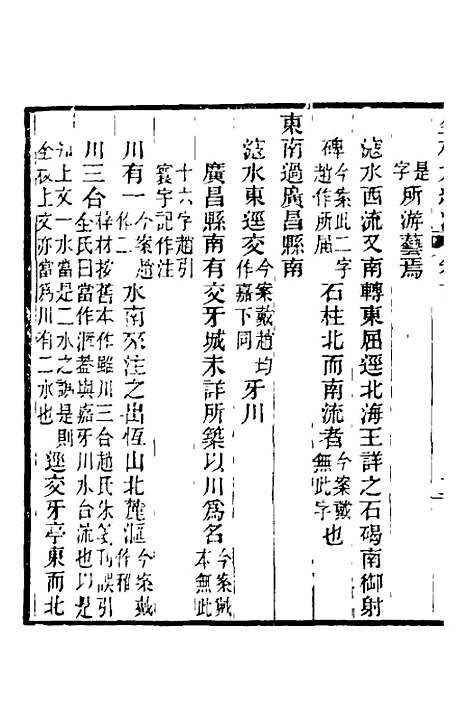 是字所游藝焉
滱水西流又南轉東屈逕北海王詳之石碣南御射
碑今案此二字趙作所屆石柱北而南流者今案戴無此字也
東南過廣昌縣南
滱水東逕交今案戴趙均作嘉下同牙川
廣昌縣南有交牙城未詳所築以川爲名今案戴本無此
十六字趙引寰宇記作注
川有一今案趙作二水南來注之出恆山北麓滙今案戴作稚
川三台梓材按舊本作雖川三台趙氏朱箋乃誤引全氏曰當作滙蓋與嘉牙川水合流也以是
知上文一水當是二水之誤是則全校上文亦當爲川有二水也逕交牙亭東而北